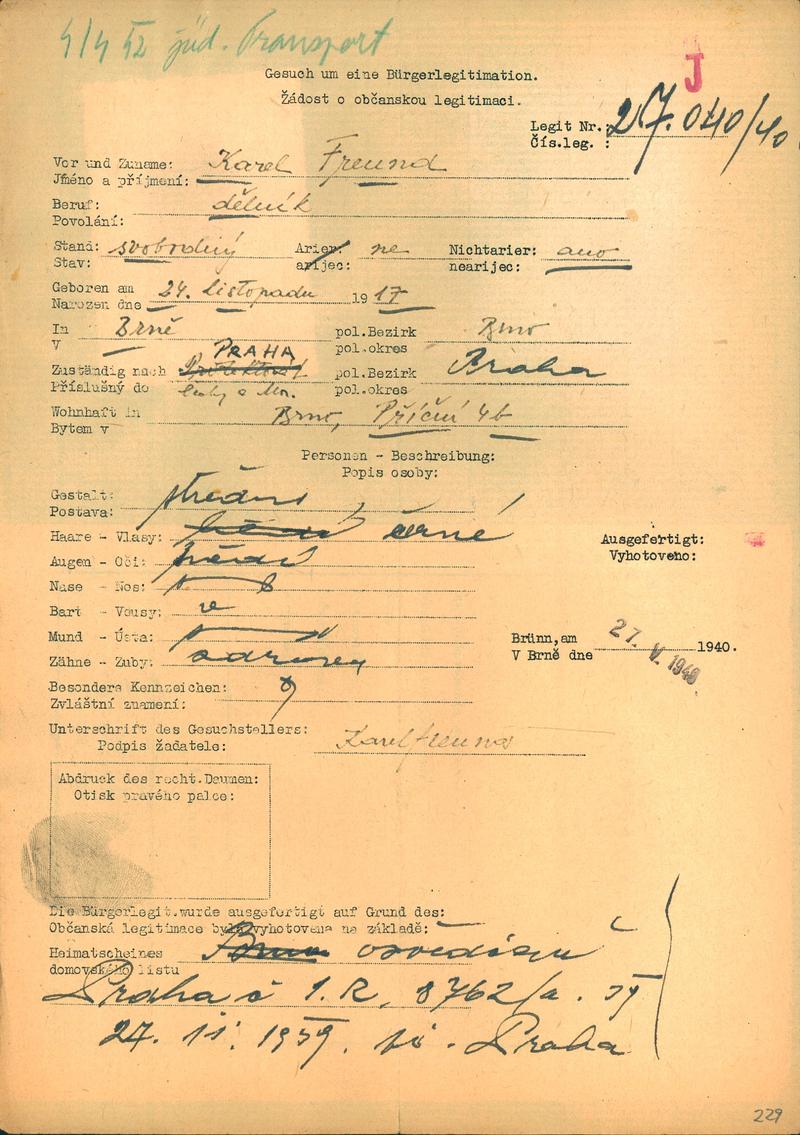 4/4 42 jüd. Transport
J
Gesuch um eine Bürgerlegitimation.
Žádost o občanskou legitimaci.
Legit Nr.: 27.040/40
Čís.leg. :
Vor und Zuname: Karel Freund
Jméno a příjmení:
Beruf: dělník
Povolání:
Stand: svobodný Arier: ne Nichtarier: ano
Stav: arijec: nearijec:
Geboren am 24. listopadu 1917
Narozen dne
In Brně pol.Bezirk Brno
V pol.okres
PRAHA
Zuständig nach Protektorát pol.Bezirk Praha
Příslušný do Čechy a Mor. pol.okres
Wohnhaft in Brno, Příční 4b
Bytem v
Personen - Beschreibung:
Popis osoby:
Gestalt: střední
Postava:
Haare - Vlasy: černé
Augen - Oči: hnědé
Nase - Nos:
Bart - Vousy:
Mund - Ústa:
Zähne - Zuby: zdravé
Besondere Kennzeichen:
Zvláštní znamení:
Ausgefertigt:
Vyhotoveno:
Brünn,am 27. V. 1940 1940.
V Brně dne
Unterschrift des Gesuchstellers:
Podpis žadatele: Karel Freund
Abdruck des recht.Daumen:
Otisk pravého palce:
Die Bürgerlegit.wurde ausgefertigt auf Grund des:
Občanská legitimace byla vyhotovena na základě:
Heimatscheines Brno osvědčení
domovského listu
Praha č 1. R. 8762/a. 39
27. 11. 1939. Praha
229